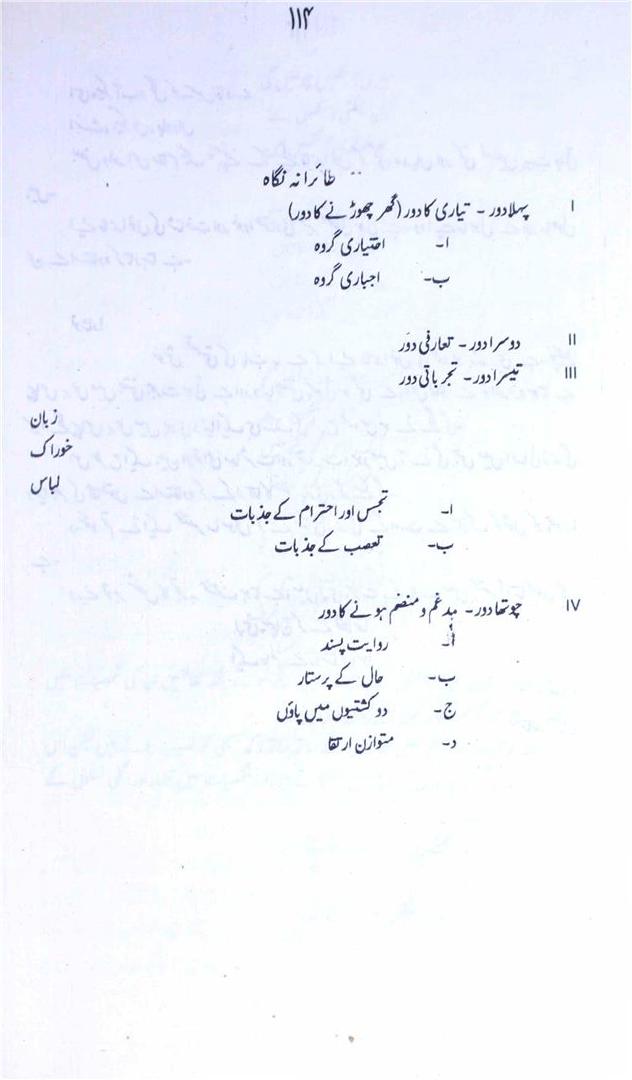 ۱۱۴
طائرانہ نگاہ
I پہلا دور - تیاری کا دور (گھر چھوڑنے کا دور)
ا- اختیاری گروہ
ب- اجباری گروہ
II دوسرا دور - تعارفی دور
III تیسرا دور - تجرباتی دور
زبان
خوراک
لباس
ا- تجسس اور احترام کے جذبات
ب- تعصب کے جذبات
IV چوتھا دور - مدغم و منضم ہونے کا دور
ا- روایت پسند
ب- حال کے پرستار
ج- دو کشتیوں میں پاؤں
د- متوازن ارتقا